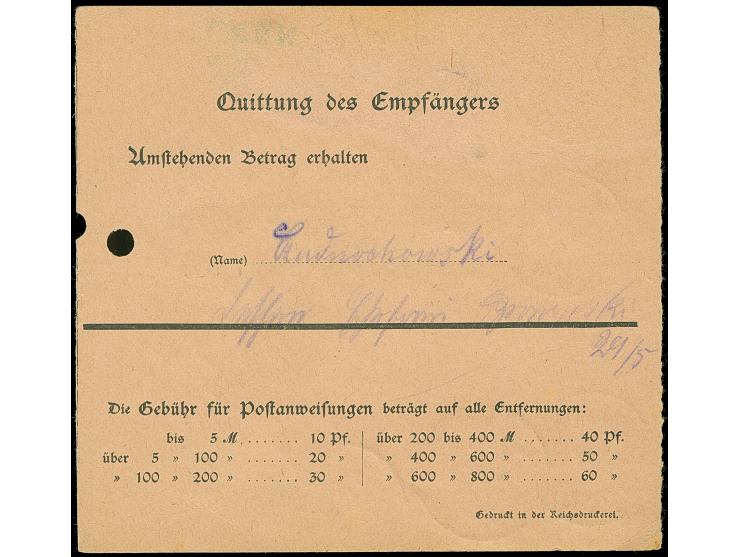 Quittung des Empfängers
Umstehenden Betrag erhalten
(Name)
29/5
Die Gebühr für Postanweisungen beträgt auf alle Entfernungen:
bis 5 M ....... 10 Pf.
über 5 " 100 " ....... 20 "
" 100 " 200 " ....... 30 "
über 200 bis 400 M ....... 40 Pf.
" 400 " 600 " ....... 50 "
" 600 " 800 " ....... 60 "
Gedruckt in der Reichsdruckerei.